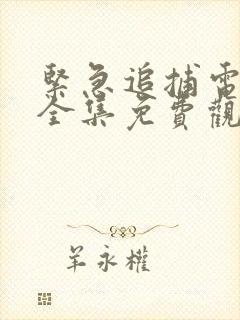 緊急追捕電
全集免費觀
羊永權